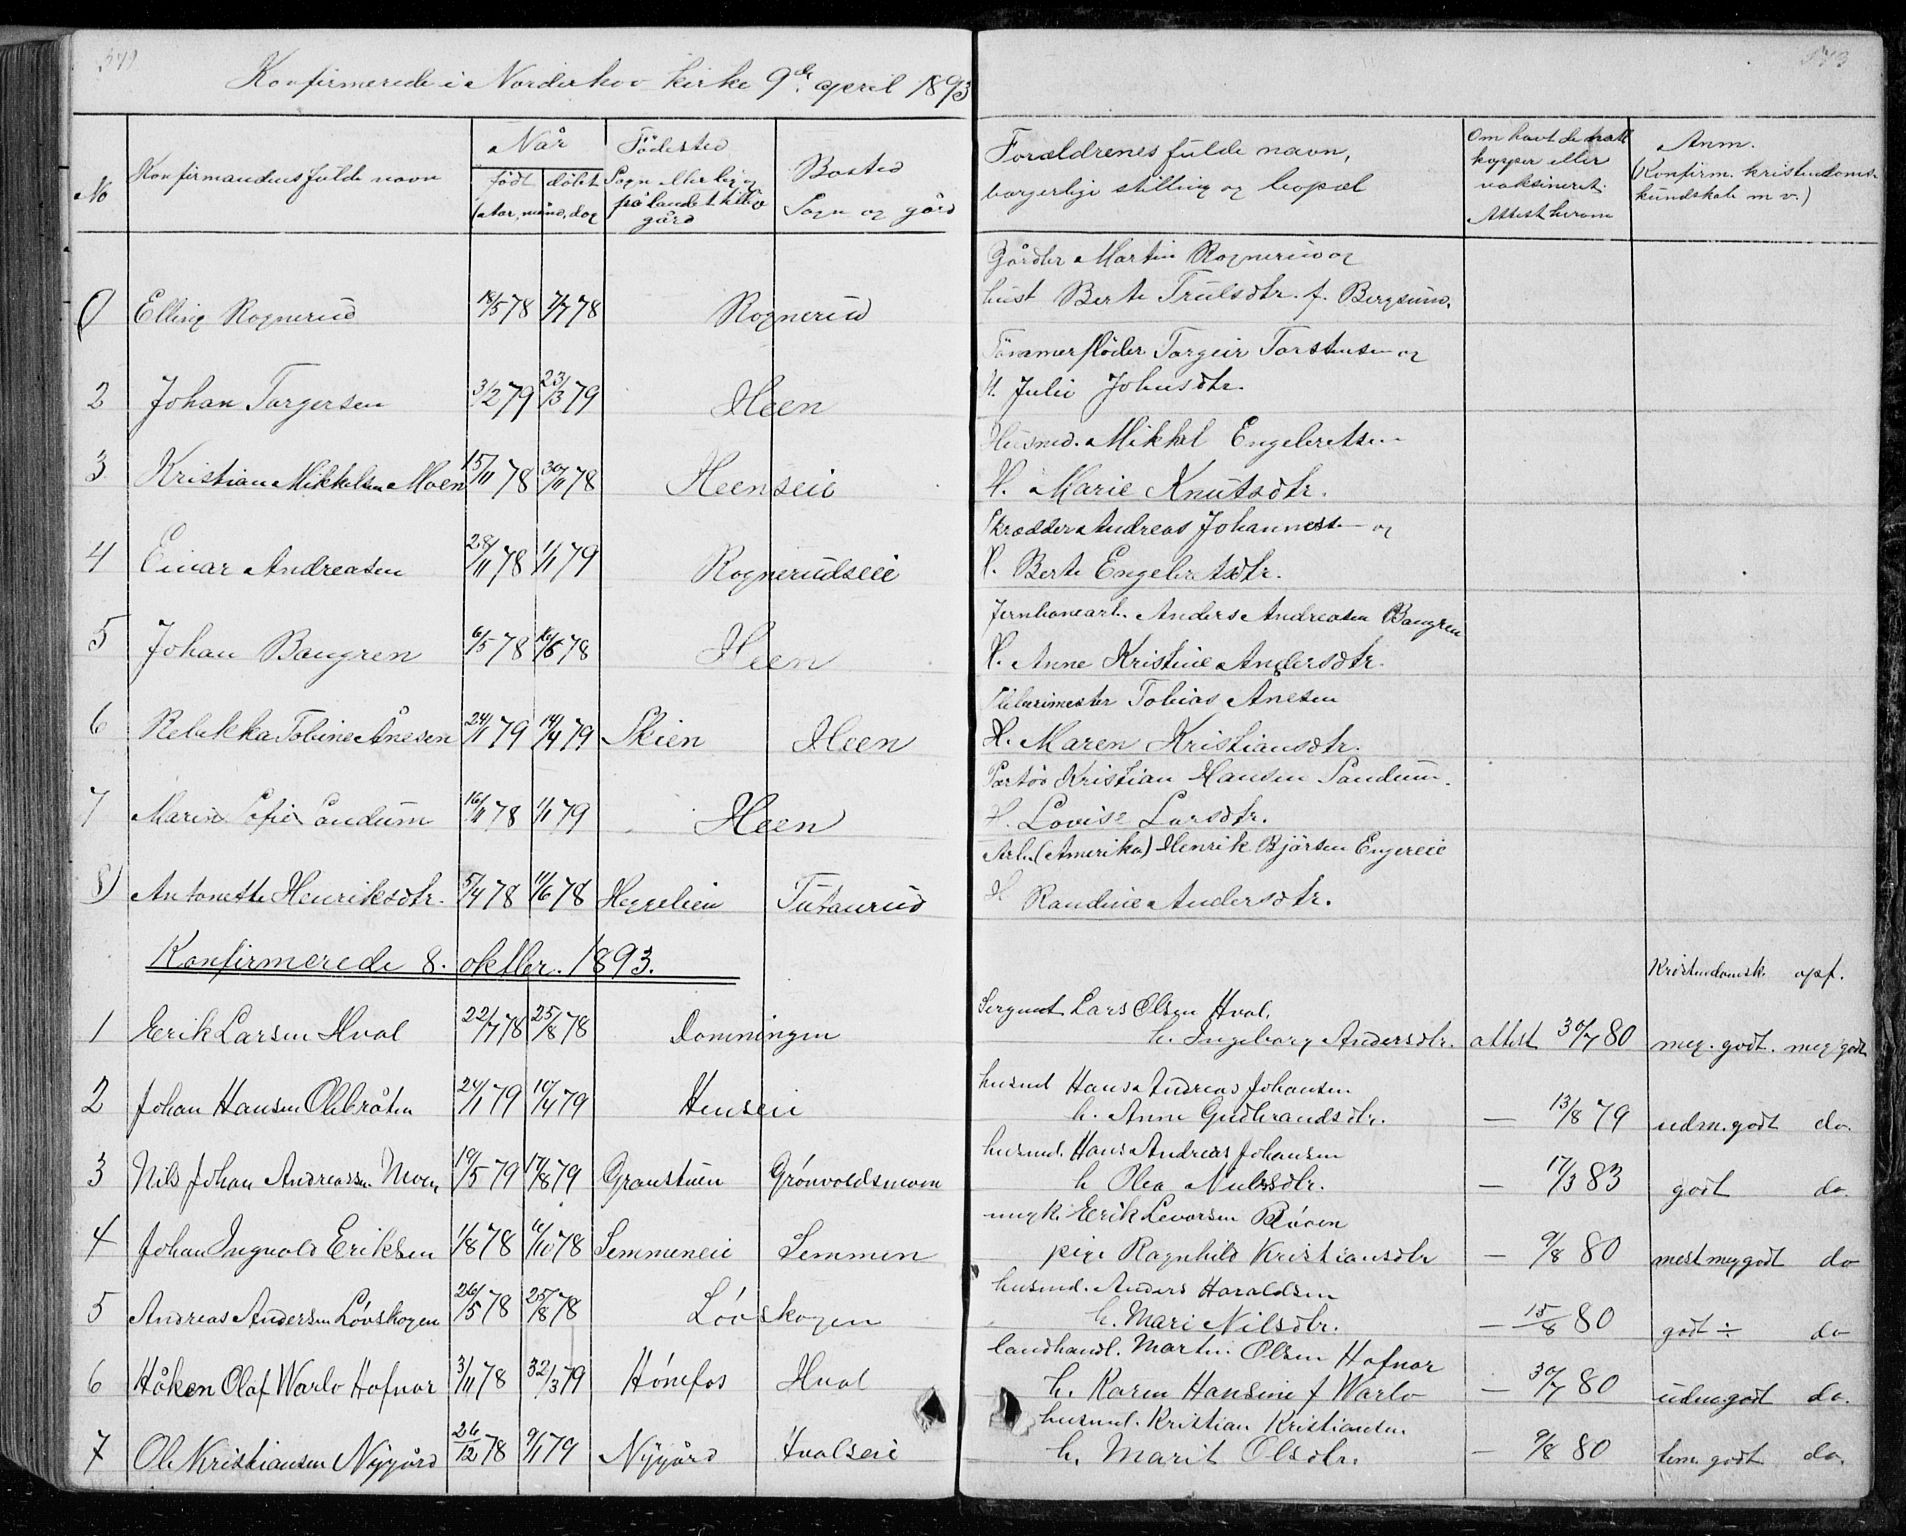 Konfirmerede i Norderhov kirke 9de april 1893
No
Konfirmandens fulde navn
Når
født
døbt
(aar, måned, dag
Fødested
Sogn eller by og
på landet tillige
gård
Bosted
Sogn og gård
Forældrenes fulde navn,
borgerlige stilling og bopæl
Om havt de natl
kopper eller
vaksineret.
Attest herom
Anm.
(Konfirm. kristendoms-
kundskab m v.)
1 Elling Rognerud 18/5 78 7/7 78 Rognerud
Gårdbr Martin Rognerud og
hust Berte Trulsdtr. f. Bergsund.
2 Johan Torgersen 3/2 79 23/3 79 Heen
Tømmerfløder Torgeir Torstensen og
H. Julie Johnsdtr.
3 Kristian Mikkelsen Moen 15/11 78 30/11 78 Heenseie
Husmd. Mikkel Engebretsen
H. Marie Knutsdtr.
4 Einar Andreasen 28/11 78 1/1 79 Rognerudseie
Skrædder Andreas Johannessen og
H. Berte Engebretsdtr.
5 Johan Bangren 6/5 78 16/6 78 Heen
Jernbanearb. Anders Andreasen Bangren
H. Anne Kristine Andersdtr.
6 Rebekka Tobine Ånesen 24/1 79 14/4 79 Skien Heen
Sliberimester Tobias Ånesen
H. Maren Kristiansdtr.
7 Marie Sofie Sandum 16/11 78 1/1 79 Heen
Kristian Hansen Sandum.
H. Lovise Larsdtr.
8) Antonette Henriksdtr. 5/4 78 11/6 78 Heggelien Tutanrud
Arb. (Amerika) Henrik Bjørsen Engereie
H Randine Andersdtr.
Konfirmerede 8. oktbr. 1893.
Kristendomsk. opf.
1 Erik Larsen Hval 22/7 78 25/8 78 Domningen
Sergeant Lars Olsen Hval,
h. Ingeborg Andersdtr. attest 30/7 80 meg. godt. meg godt
2 Johan Hansen Olebråten 24/1 79 14/4 79 Henseie
husmd Hans Andreas Johansen
h. Anne Gudbrandsdtr. — 13/8 79 udm. godt do.
3 Nils Johan Andreassen Moen 19/5 79 17/8 79 Granstuen Grønvoldsmoen
husmd. Hans Andreas Johansen
h Olea Nielsdtr. — 17/3 83 godt do.
4 Johan Ingvald Eriksen 1/8 78 6/10 78 Semmeneie Semmen
ungk. Erik Levorsen
pige Ragnhild Kristiansdtr — 9/8 80 mest meg godt do
5 Andreas Andersen Løvskogen 26/5 78 25/8 78 Løvskogen
husmd. Anders Haraldsen
h. Mari Nilsdtr. — 15/8 80 godt ÷ do
6 Håken Olaf Warlo Hafnor 3/11 78 32/3 79 Hønefos Hval
landhandl. Martin Olsen Hafnor
h. Karen Hansine f Warlo — 30/7 80 udm. godt do.
7 Ole Kristiansen Nygård 26/12 78 9/1 79 Nygård Hvalseie
husmd. Kristian Kristiansen
h. Marit Olsdtr. — 9/8 80 tem. godt do.